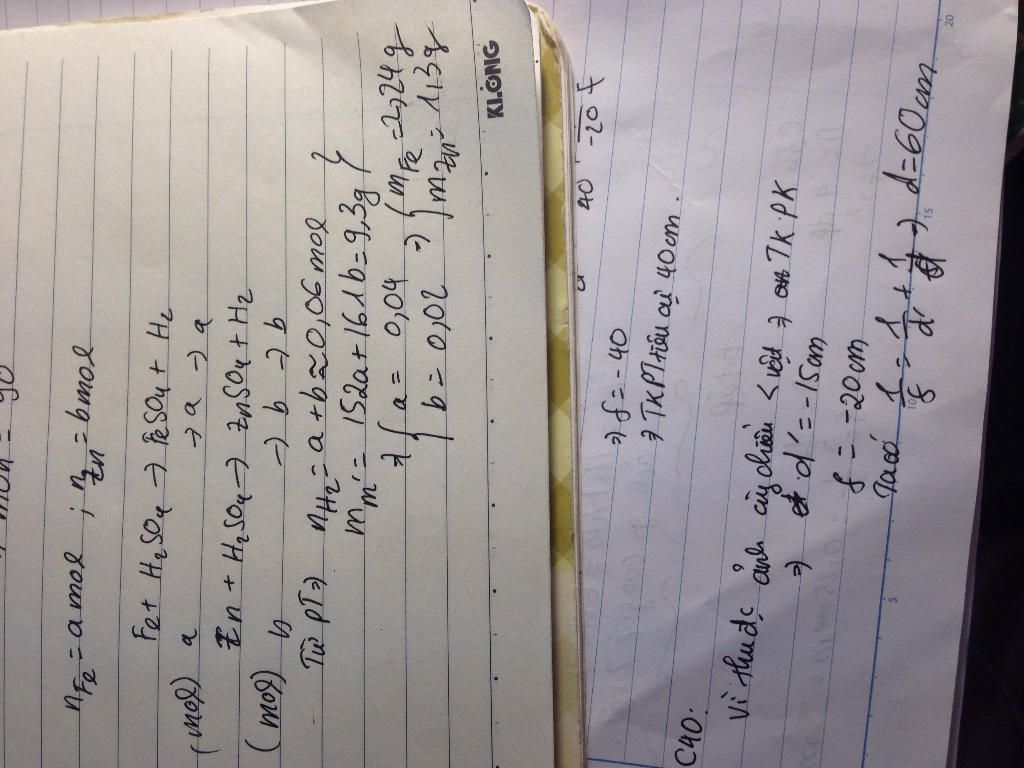 nFe = a mol ; nZn = b mol
Fe + H2SO4 → FeSO4 + H2
(mol) a → a → a
Zn + H2SO4 → ZnSO4 + H2
(mol) b → b → b
Từ PT ⇒ nH2 = a + b ≈ 0,06 mol }
m m' = 152a + 161b = 9,3g }
⇒ { a = 0,04 ⇒ { mFe = 2,24g
{ b = 0,02 { mZn = 1,3g
KLONG
40 -20 f
⇒ f = -40
⇒ TKPT tiêu cự 40cm.
C40.
Vì thu đc ảnh cùng chiều < vật ⇒ TK.PK
⇒ d' = -15cm
f = -20cm
Ta có 1/f = 1/d' + 1/d ⇒ d = 60cm
5 10 15 20